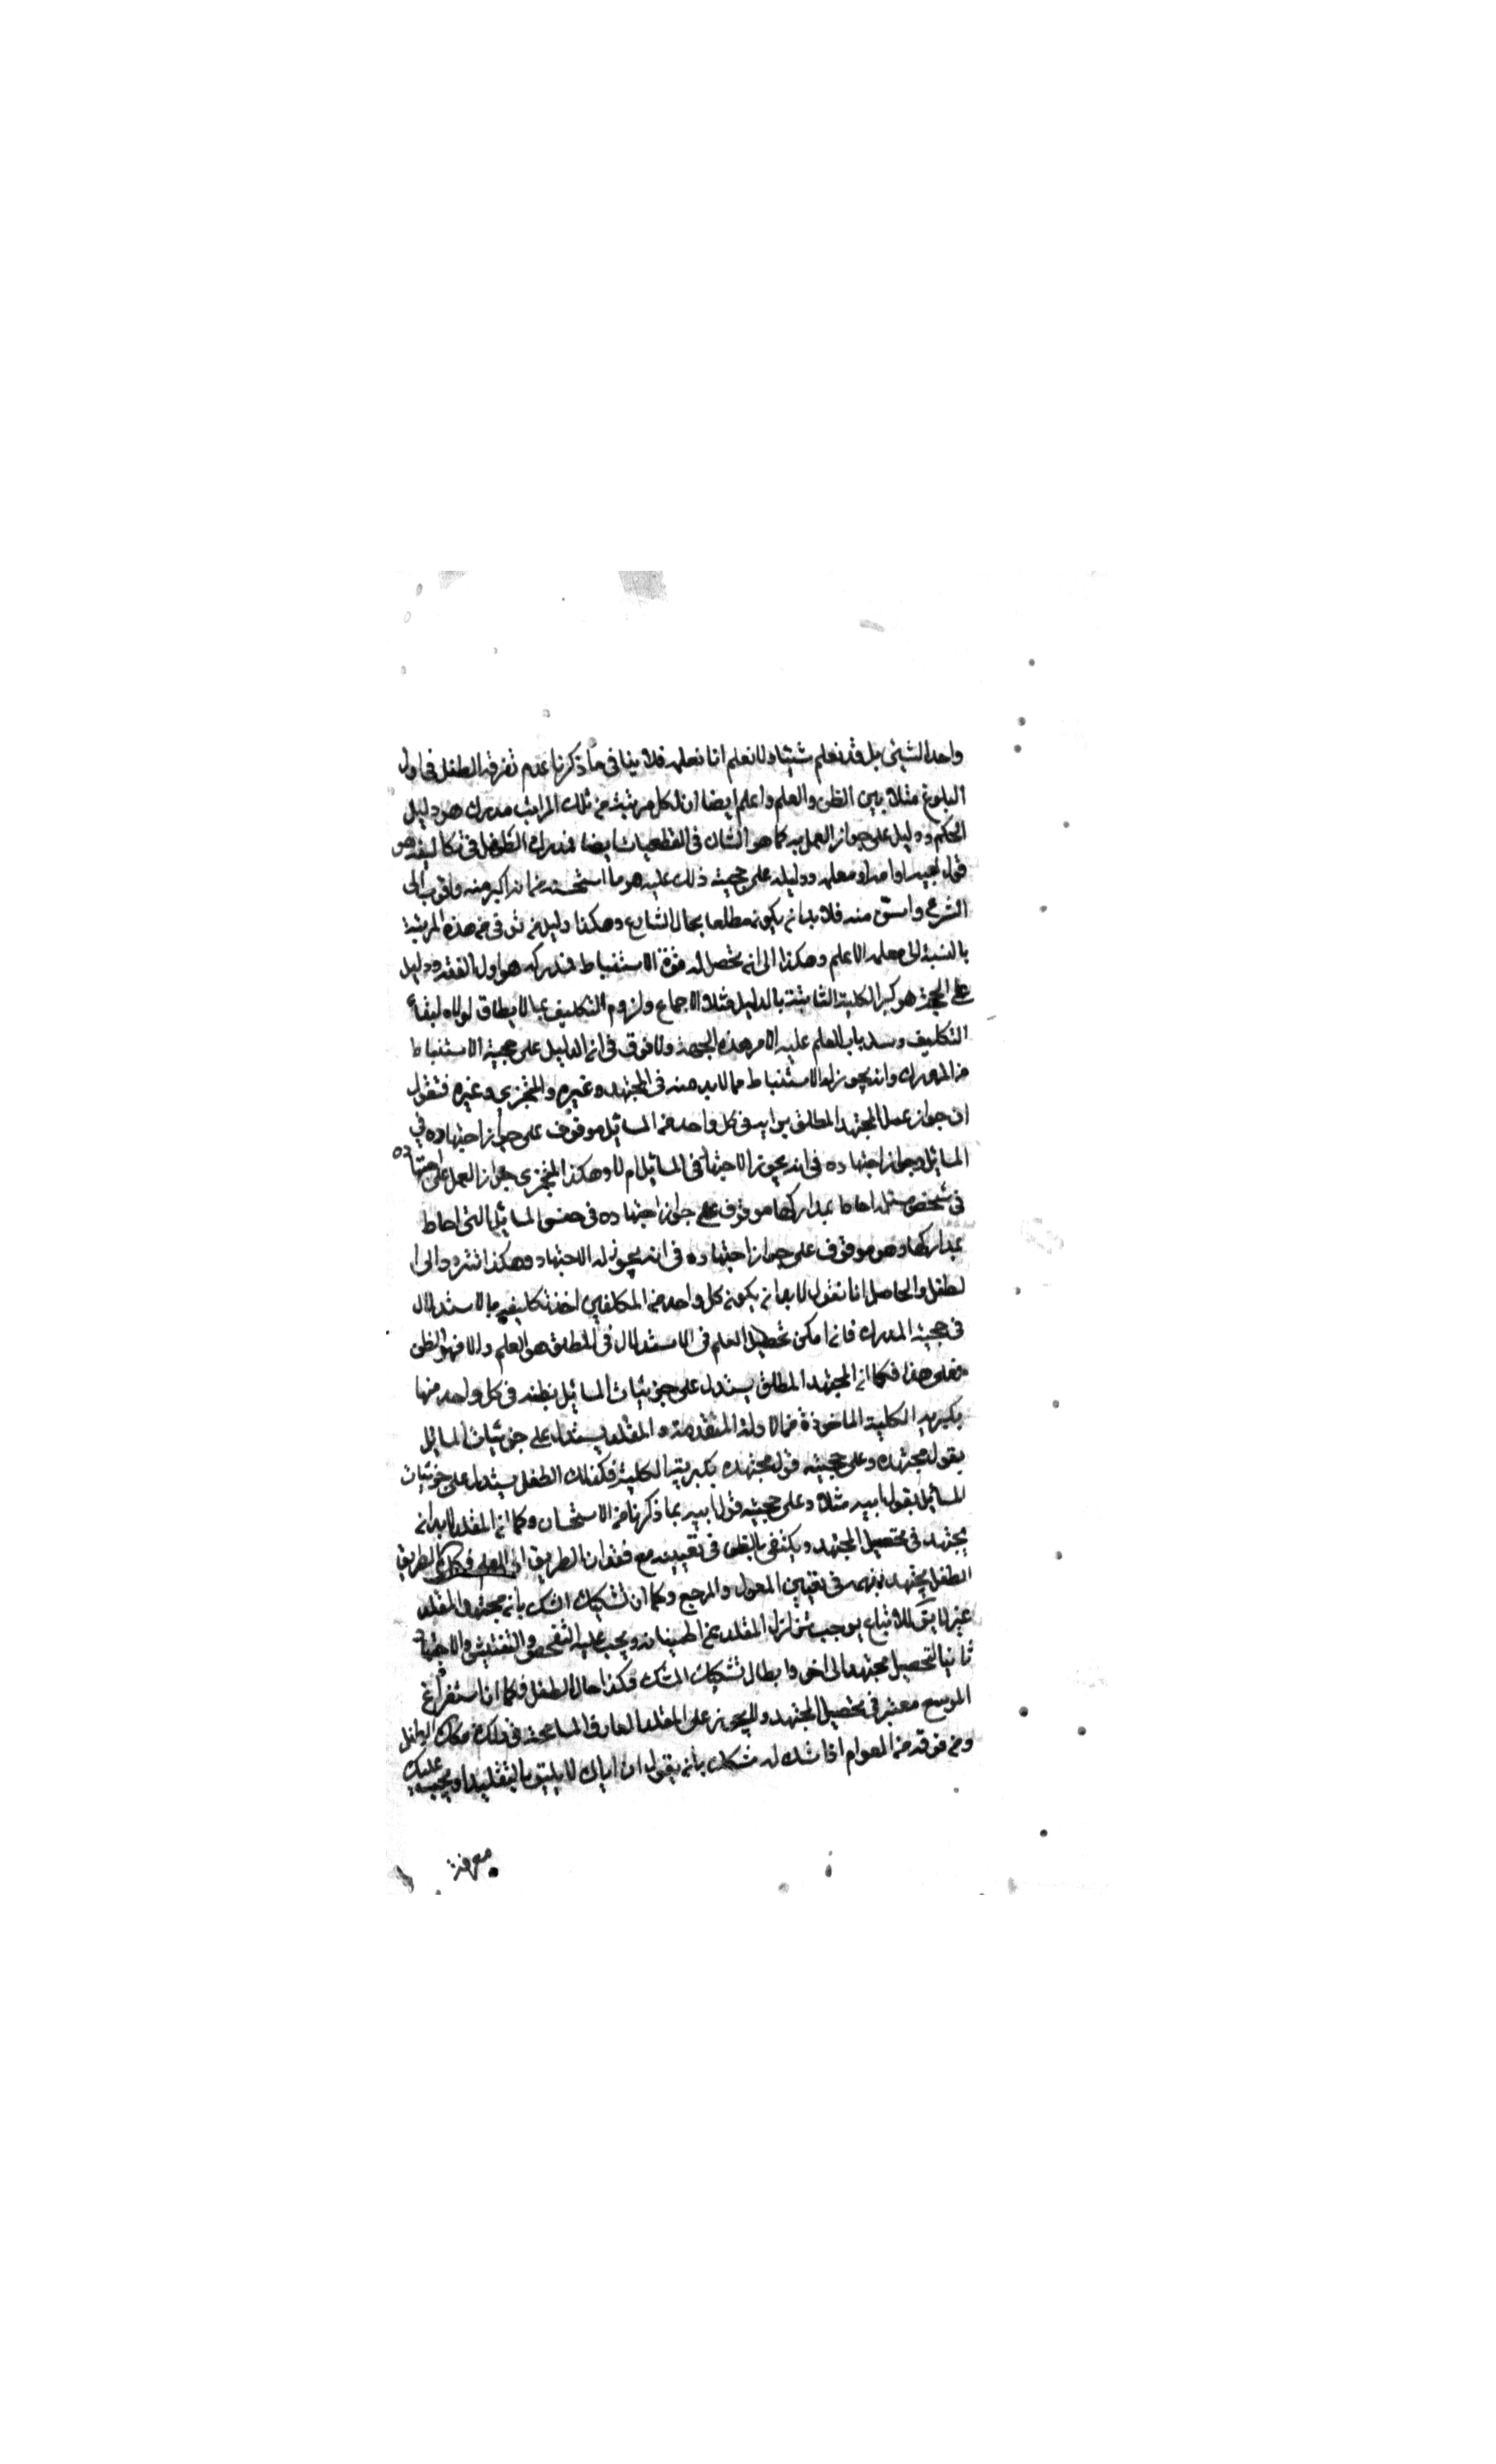 واحد الشيئ بل قد نعلم شيئا ولا نعلم انا نعلمه فلا ينافى ما ذكرنا عدم تفرقة الطفل فى اول
البلوغ مثلا بين الظن والعلم واعلم ايضا ان لكل مرتبة من تلك المراتب مدرك هو دليل
الحكم ودليل على جواز العمل به كما هو الشان فى القطعيات ايضا فمدرك الطفل فى تكاليفه هو
قول ابيه او امه او معلمه ودليله على حجية ذلك عليه هو ما استحسنه من انه اكبر منه واقرب الى
الشرع واسبق منه فلا بد ان يكون مطلعا بحال الشارع وهكذا دليل من ترقى من هذه المرتبة
بالنسبة الى معلمه الاعلم وهكذا الى ان يحصل له قوة الاستنباط فمدركه هو اول الفقه ودليل
على الحجية هو كبراه الكلية الثابتة بالدليل مثلا الاجماع ولزوم التكليف بما لا يطاق لولاه لبقاء
التكليف وسد باب العلم عليه الا من هذه الجهة ولا فرق فى ان الدليل على حجية الاستنباط
من المدرك وانه يجوز له الاستنباط مما لا بد منه فى المجتهد وغيره والمتجزى وغيره فنقول
ان جواز عمل المجتهد المطلق برايه فى كل واحد من المسائل موقوف على جواز اجتهاده فى
المسائل وجواز اجتهاده فى انه يجوز الاجتهاد فى المسائل ام لا وهكذا المتجزى جواز العمل على اجتهاده
فى شخص مسئلة احاط بمداركها موقوف على جواز اجتهاده فى جنس المسائل التى احاط
بمداركها وهو موقوف على جواز اجتهاده فى انه يجوز له الاجتهاد وهكذا تنزد الى ا
لطفل والحاصل انا نقول لا بد ان يكون كل واحد من المكلفين اخذ تكليفه بالاستدلال
فى حجية المدرك فان امكن تحصيل العلم فى الاستدلال فى المطلق هو العلم والا فهو الظن
فعلى هذا فكما ان المجتهد المطلق يستدل على جزئيات المسائل بظنه فى كل واحد منها
بكبريه الكلية الماخوذة من الادلة المتقدمة والمقلد يستدل على جزئيات المسائل
بقول مجتهده وعلى حجية قول مجتهده بكبريته الكلية فكذلك الطفل يستدل على جزئيات
المسائل بقول ابيه مثلا وعلى حجية قول ابيه بما ذكرنا من الاستحسان وكما ان المقلد لا بد ان
يجتهد فى تحصيل المجتهد ويكتفى بالظن فى تعيينه مع فقدان الطريق الى العلم فكذلك الطريق
الطفل يجتهد بفهمه فى تعيين المعول والمرجع وكما ان تشكيك المشكك بان مجتهد المقلد
غير لايق للاتباع يوجب تزلزل المقلد عن اطمينانه ويجب عليه التفحص والتفتيش والاجتهاد
ثانيا لتحصيل مجتهد الى اخر وابطال تشكيك المشكك فكذا حال الطفل فكما ان استفراغ
الوسع معتبر فى تحصيل المجتهد ولا يجوز على المقلد العارف المسامحة فى ذلك فكذلك الطفل
ومن فوقه من العوام اذا شكك له مشكك بان يقول ان اباك لا يليق بالتقليد او يجب عليك
معرفة